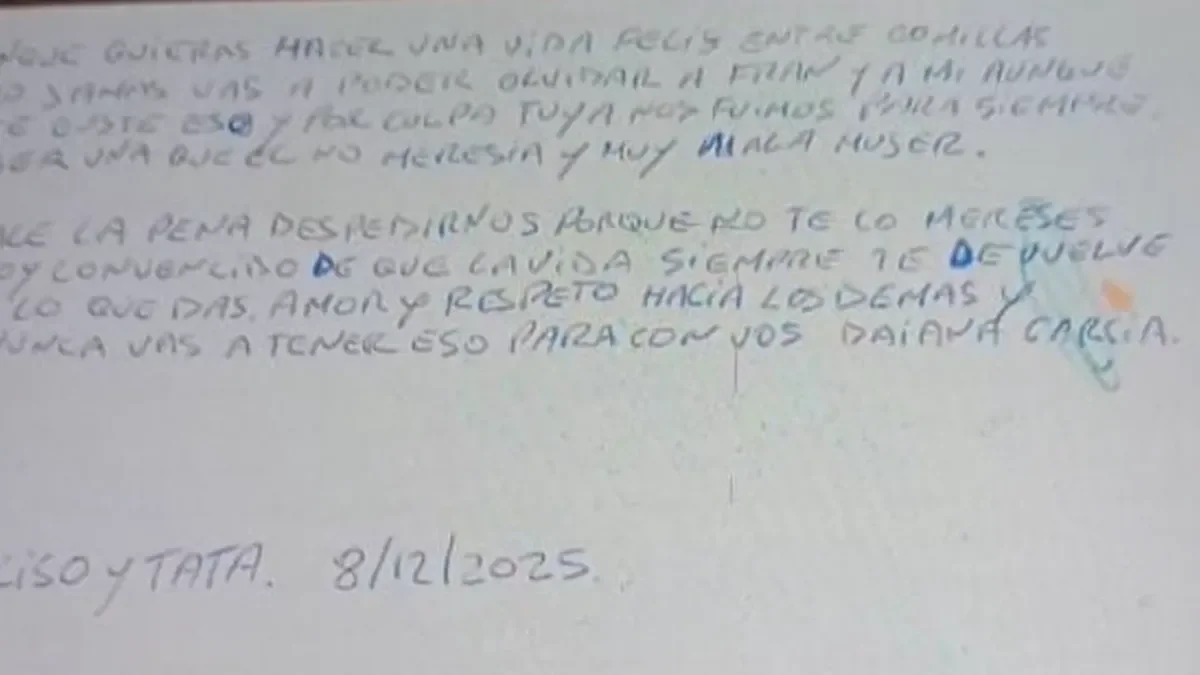 QUIERAS HACER UNA VIDA FELIS ENTRE COMILLAS
JAMAS VAS A PODER OLVIDAR A FRAN Y A MI AUNQUE
ESO Y POR CULPA TUYA NOS FUIMOS PARA SIEMPRE.
UNA QUE EL NO MERESIA Y MUY MALA MUSER.
LA PENA DESPEDIRNOS PORQUE NO TE LO MERESES
CONVENCIDO DE QUE LA VIDA SIEMPRE TE DEVUELVE
LO QUE DAS. AMOR Y RESPETO HACIA LOS DEMAS Y
NUNCA VAS A TENER ESO PARA CON VOS DAIANA GARCIA.
CISO Y TATA. 8/12/2025.